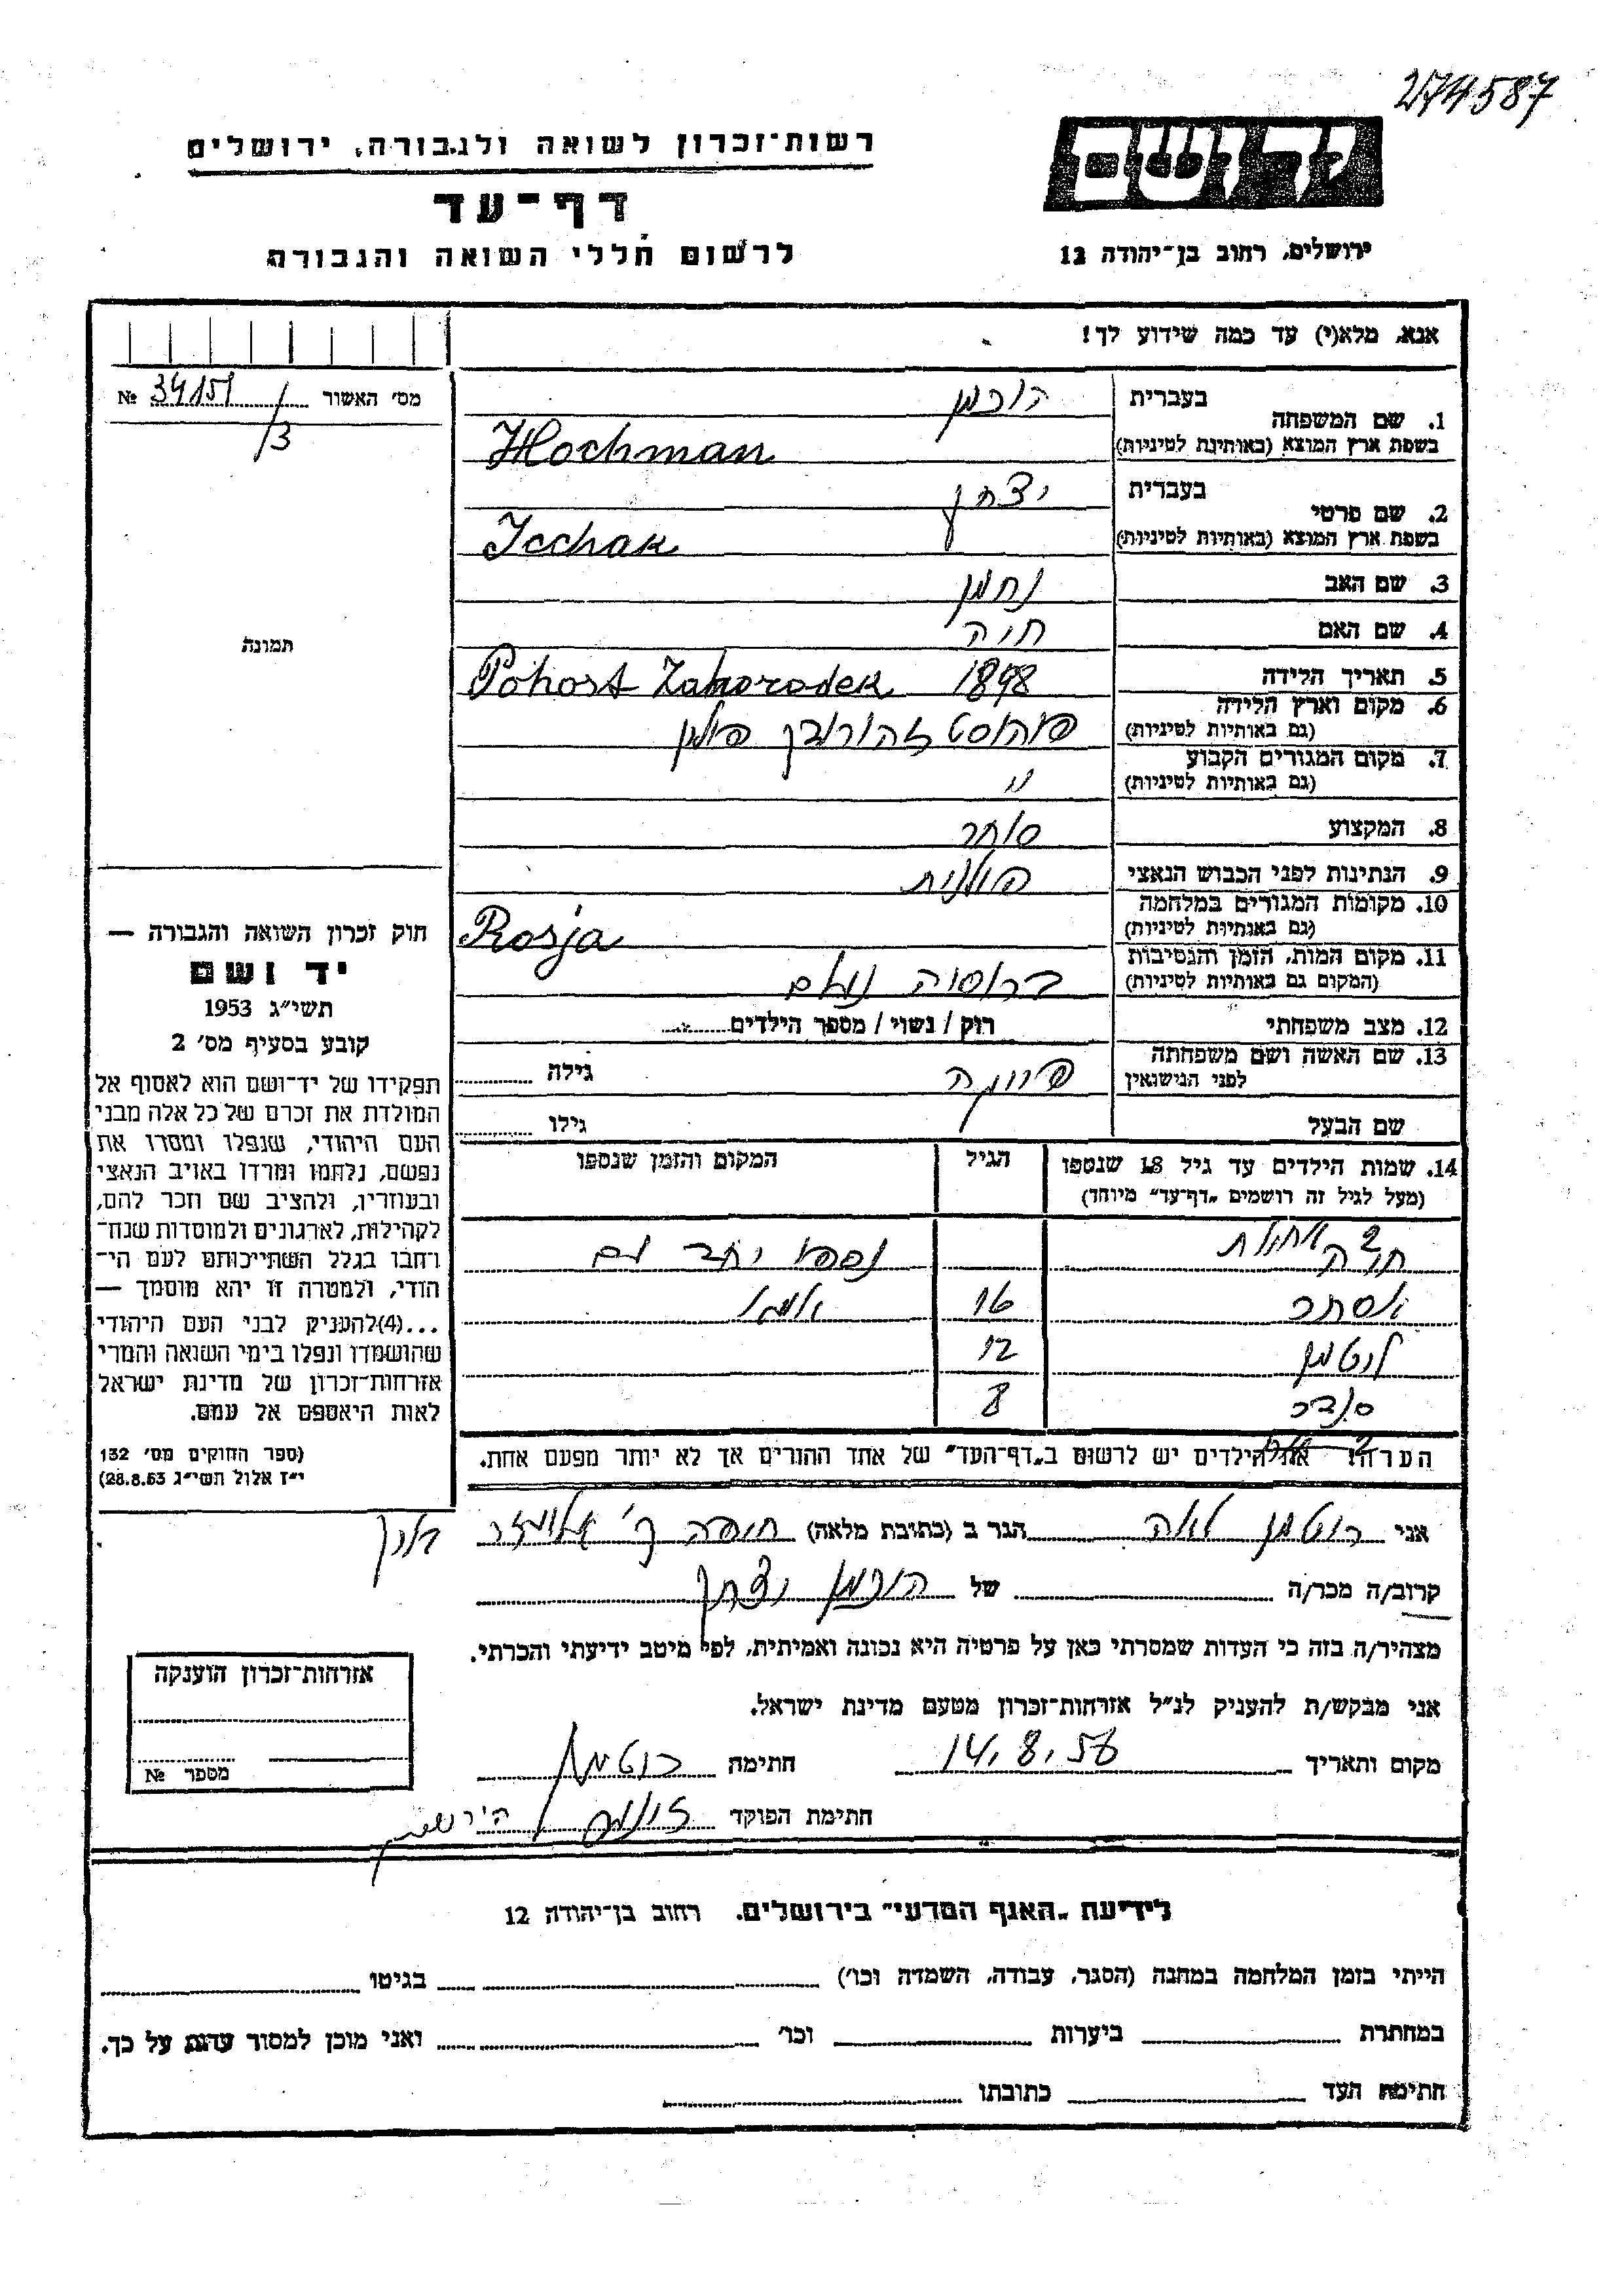 274587
רשות־זכרון לשואה ולגבורה, ירושלים
ידושם
דף־עד
לרשום חללי השואה והגבורה
ירושלים, רחוב בן־יהודה 12
אנא, מלא(י) עד כמה שידוע לך!
מס׳ האשור № 34151
/3
תמונה
1. שם המשפחה בעברית הוכמן
בשפת ארץ המוצא (באותיות לטיניות) Hochman
2. שם פרטי בעברית יצחק
בשפת ארץ המוצא (באותיות לטיניות) Icchak
3. שם האב נחמן
4. שם האם חיה
5. תאריך הלידה 1898
6. מקום וארץ הלידה Pohost Zahorodek
(גם באותיות לטיניות) פוהוסט זהורודק פולין
7. מקום המגורים הקבוע
(גם באותיות לטיניות) "
8. המקצוע סוחר
9. הנתינות לפני הכבוש הנאצי פולנית
10. מקומות המגורים במלחמה
(גם באותיות לטיניות) Rosja
11. מקום המות, הזמן והנסיבות
(המקום גם באותיות לטיניות) ברוסיה נעלם
12. מצב משפחתי רוק / נשוי / מספר הילדים
13. שם האשה ושם משפחתה
לפני הנישואין גילה
שם הבעל גילו
14. שמות הילדים עד גיל 18 שנספו הגיל המקום והזמן שנספו
(מעל לגיל זה רושמים „דף־עד” מיוחד)
נספו יחד עם
אסתר 16 אמא
12
8
הערה: את הילדים יש לרשום ב„דף־העד” של אחד ההורים אך לא יותר מפעם אחת.
חוק זכרון השואה והגבורה —
יד ושם
תשי״ג 1953
קובע בסעיף מס׳ 2
תפקידו של יד־ושם הוא לאסוף אל
המולדת את זכרם של כל אלה מבני
העם היהודי, שנפלו ומסרו את
נפשם, נלחמו ומרדו באויב הנאצי
ובעוזריו, ולהציב שם וזכר להם,
לקהילות, לארגונים ולמוסדות שנח־
רחבו בגלל השתייכותם לעם הי־
הודי, ולמטרה זו יהא מוסמך —
...(4)להעניק לבני העם היהודי
שהושמדו ונפלו בימי השואה והמרי
אזרחות־זכרון של מדינת ישראל
לאות היאספם אל עמם.
(ספר החוקים מס׳ 132
י״ז אלול תשי״ג 28.8.53)
אני רוטמן לאה הגר ב (כתובת מלאה) חיפה ק׳ אליעזר
קרוב/ה מכר/ה של הוכמן יצחק
מצהיר/ה בזה כי העדות שמסרתי כאן על פרטיה היא נכונה ואמיתית, לפי מיטב ידיעתי והכרתי.
אני מבקש/ת להעניק לנ״ל אזרחות־זכרון מטעם מדינת ישראל.
מקום ותאריך 14.8.56 חתימה רוטמן
חתימת הפוקד
אזרחות־זכרון הוענקה
מספר №
לידיעת „האגף המדעי” בירושלים, רחוב בן־יהודה 12
הייתי בזמן המלחמה במחנה (הסגר, עבודה, השמדה וכו׳) בגיטו
במחתרת ביערות וכו׳ ואני מוכן למסור עדות על כך.
חתימת העד כתובתו